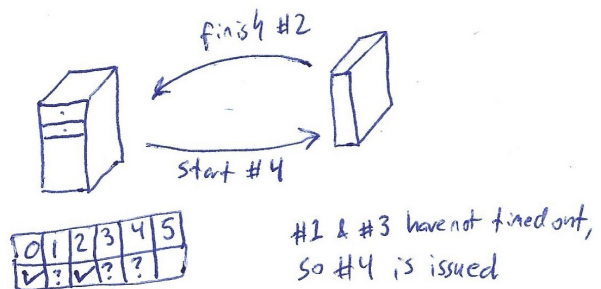 finish #2
start #4
0 1 2 3 4 5
✓ ? ✓ ? ?
#1 & #3 have not timed out,
so #4 is issued